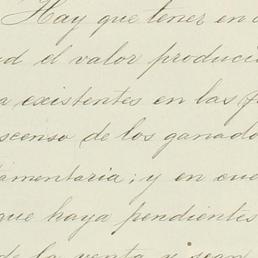 Hay que tener en
el valor produci
existentes en las
de los ganado
amentaria; y en cue
que haya pendientes
de la venta y sean